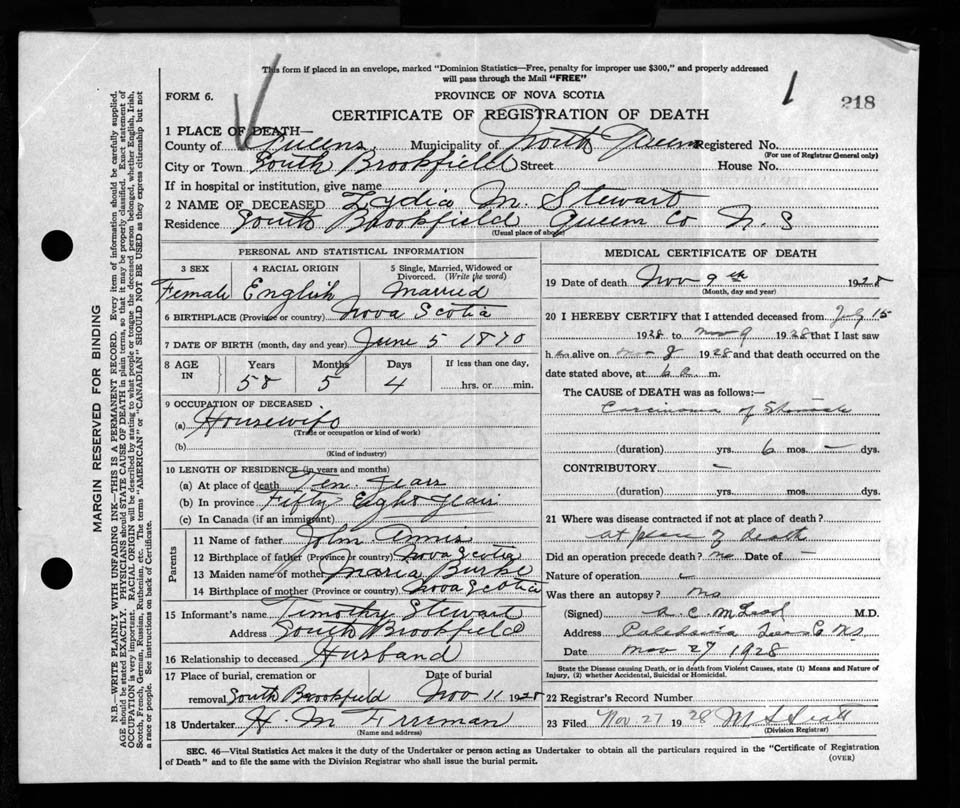 This form if placed in an envelope, marked "Dominion Statistics—Free, penalty for improper use $300," and properly addressed
will pass through the Mail "FREE"
1
218
FORM 6.
PROVINCE OF NOVA SCOTIA
CERTIFICATE OF REGISTRATION OF DEATH
1 PLACE OF DEATH—
County of Queens Municipality of North Queens Registered No.
(For use of Registrar General only)
City or Town South Brookfield Street House No.
If in hospital or institution, give name
2 NAME OF DECEASED Lydia M. Stewart
Residence South Brookfield Queens Co N. S
(Usual place of abode)
PERSONAL AND STATISTICAL INFORMATION
3 SEX
Female
4 RACIAL ORIGIN
English
5 Single, Married, Widowed or
Divorced. (Write the word)
Married
6 BIRTHPLACE (Province or country) Nova Scotia
7 DATE OF BIRTH (month, day and year) June 5 1870
8 AGE
IN
Years Months Days
58 5 4
If less than one day,
hrs. or min.
9 OCCUPATION OF DECEASED
(a) Housewife
(Trade or occupation or kind of work)
(b)
(Kind of industry)
10 LENGTH OF RESIDENCE (in years and months)
(a) At place of death Ten Years
(b) In province Fifty Eight Years
(c) In Canada (if an immigrant)
Parents
11 Name of father John Annis
12 Birthplace of father (Province or country) Nova Scotia
13 Maiden name of mother Maria Burke
14 Birthplace of mother (Province or country) Nova Scotia
15 Informant's name Timothy Stewart
Address South Brookfield
16 Relationship to deceased Husband
17 Place of burial, cremation or Date of burial
removal South Brookfield Nov 11 1928
18 Undertaker H. M Freeman
(Name and address)
MEDICAL CERTIFICATE OF DEATH
19 Date of death Nov 9th 1928
(Month, day and year)
20 I HEREBY CERTIFY that I attended deceased from July 15
1928 to Nov 9 1928 that I last saw
her alive on Nov 9 1928 and that death occurred on the
date stated above, at 6 a. m.
The CAUSE of DEATH was as follows:
Carcinoma of Stomach
(duration) yrs. 6 mos. — dys.
CONTRIBUTORY —
(duration) yrs. mos. dys.
21 Where was disease contracted if not at place of death?
at place of death
Did an operation precede death? no Date of —
Nature of operation
Was there an autopsy? no
(Signed) M.D.
Address Caledonia Queens Co NS
Date Nov 27 1928
State the Disease causing Death, or in death from Violent Causes, state (1) Means and Nature of
Injury, (2) whether Accidental, Suicidal or Homicidal.
22 Registrar's Record Number
23 Filed Nov. 27 1928
(Division Registrar)
SEC. 46—Vital Statistics Act makes it the duty of the Undertaker or person acting as Undertaker to obtain all the particulars required in the "Certificate of Registration
of Death" and to file the same with the Division Registrar who shall issue the burial permit.
(OVER)
MARGIN RESERVED FOR BINDING
N.B.—WRITE PLAINLY WITH UNFADING INK—THIS IS A PERMANENT RECORD. Every item of information should be carefully supplied.
AGE should be stated EXACTLY. PHYSICIANS should STATE CAUSE OF DEATH in plain terms, so that it may be properly classified. Exact statement of
OCCUPATION is very important. RACIAL ORIGIN will be described by stating to what people or tongue the deceased person belonged, whether English, Irish,
Scotch, French, German, Russian, Ruthenian, etc. The terms "AMERICAN" or "CANADIAN" SHOULD NOT BE USED as they express citizenship but not
a race or people. See instructions on back of Certificate.